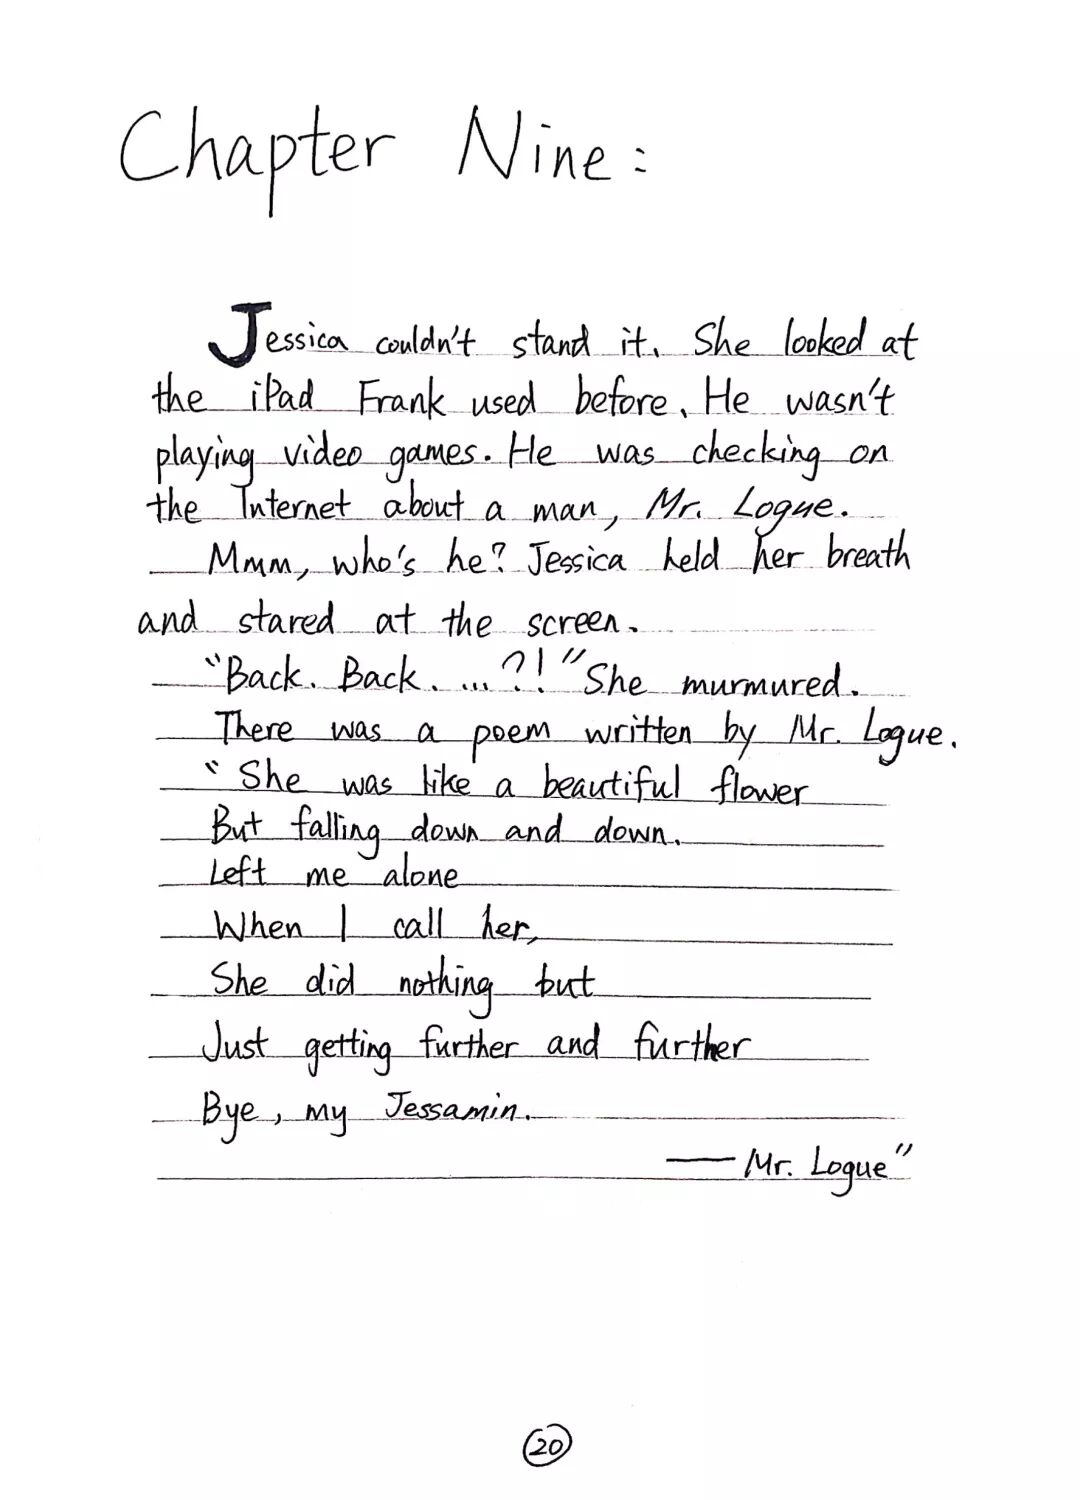 Chapter Nine:
Jessica couldn't stand it. She looked at
the iPad Frank used before. He wasn't
playing video games. He was checking on
the Internet about a man, Mr. Logue.
Mmm, who's he? Jessica held her breath
and stared at the screen.
"Back. Back. ...?!" She murmured.
There was a poem written by Mr. Logue.
"She was like a beautiful flower
But falling down and down.
Left me alone
When I call her,
She did nothing but
Just getting further and further
Bye, my Jessamin.
— Mr. Logue"
20